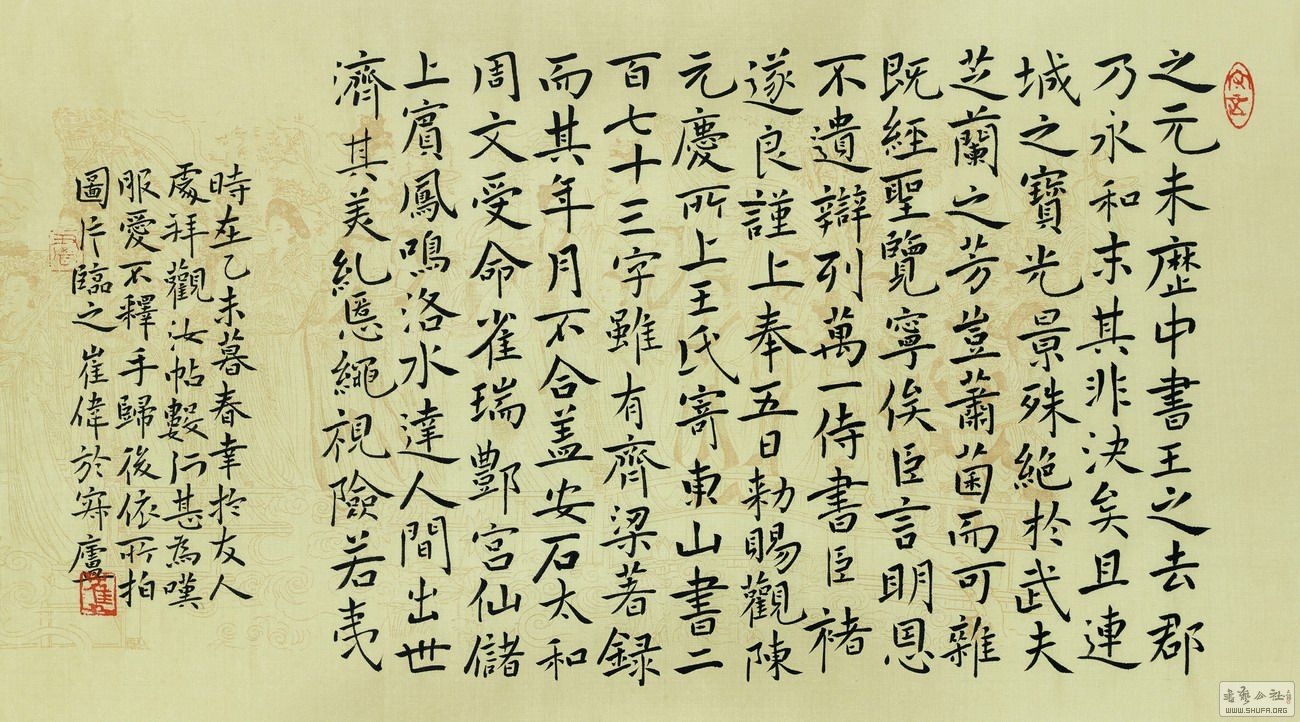 之元未歷中書王之去郡
乃永和末其非决矣且連
城之寶光景殊絶於武夫
芝蘭之芳豈蕭菌而可雜
既經聖覽寧俟臣言明恩
不遺辯列萬一侍書臣褚
遂良謹上奉五日勑賜觀陳
元慶所上王氏寄東山書二
百七十三字雖有齊梁著錄
而其年月不合盖安石太和
周文受命雀瑞酆宮仙儲
上賓鳳鳴洛水達人間出世
濟其美糺慝繩視險若夷
時在乙未暮春幸於友人
處拜觀汝帖數行甚為嘆
服愛不釋手歸後依所拍
圖片臨之崔偉於寐廬
WWW.SHUFA.ORG